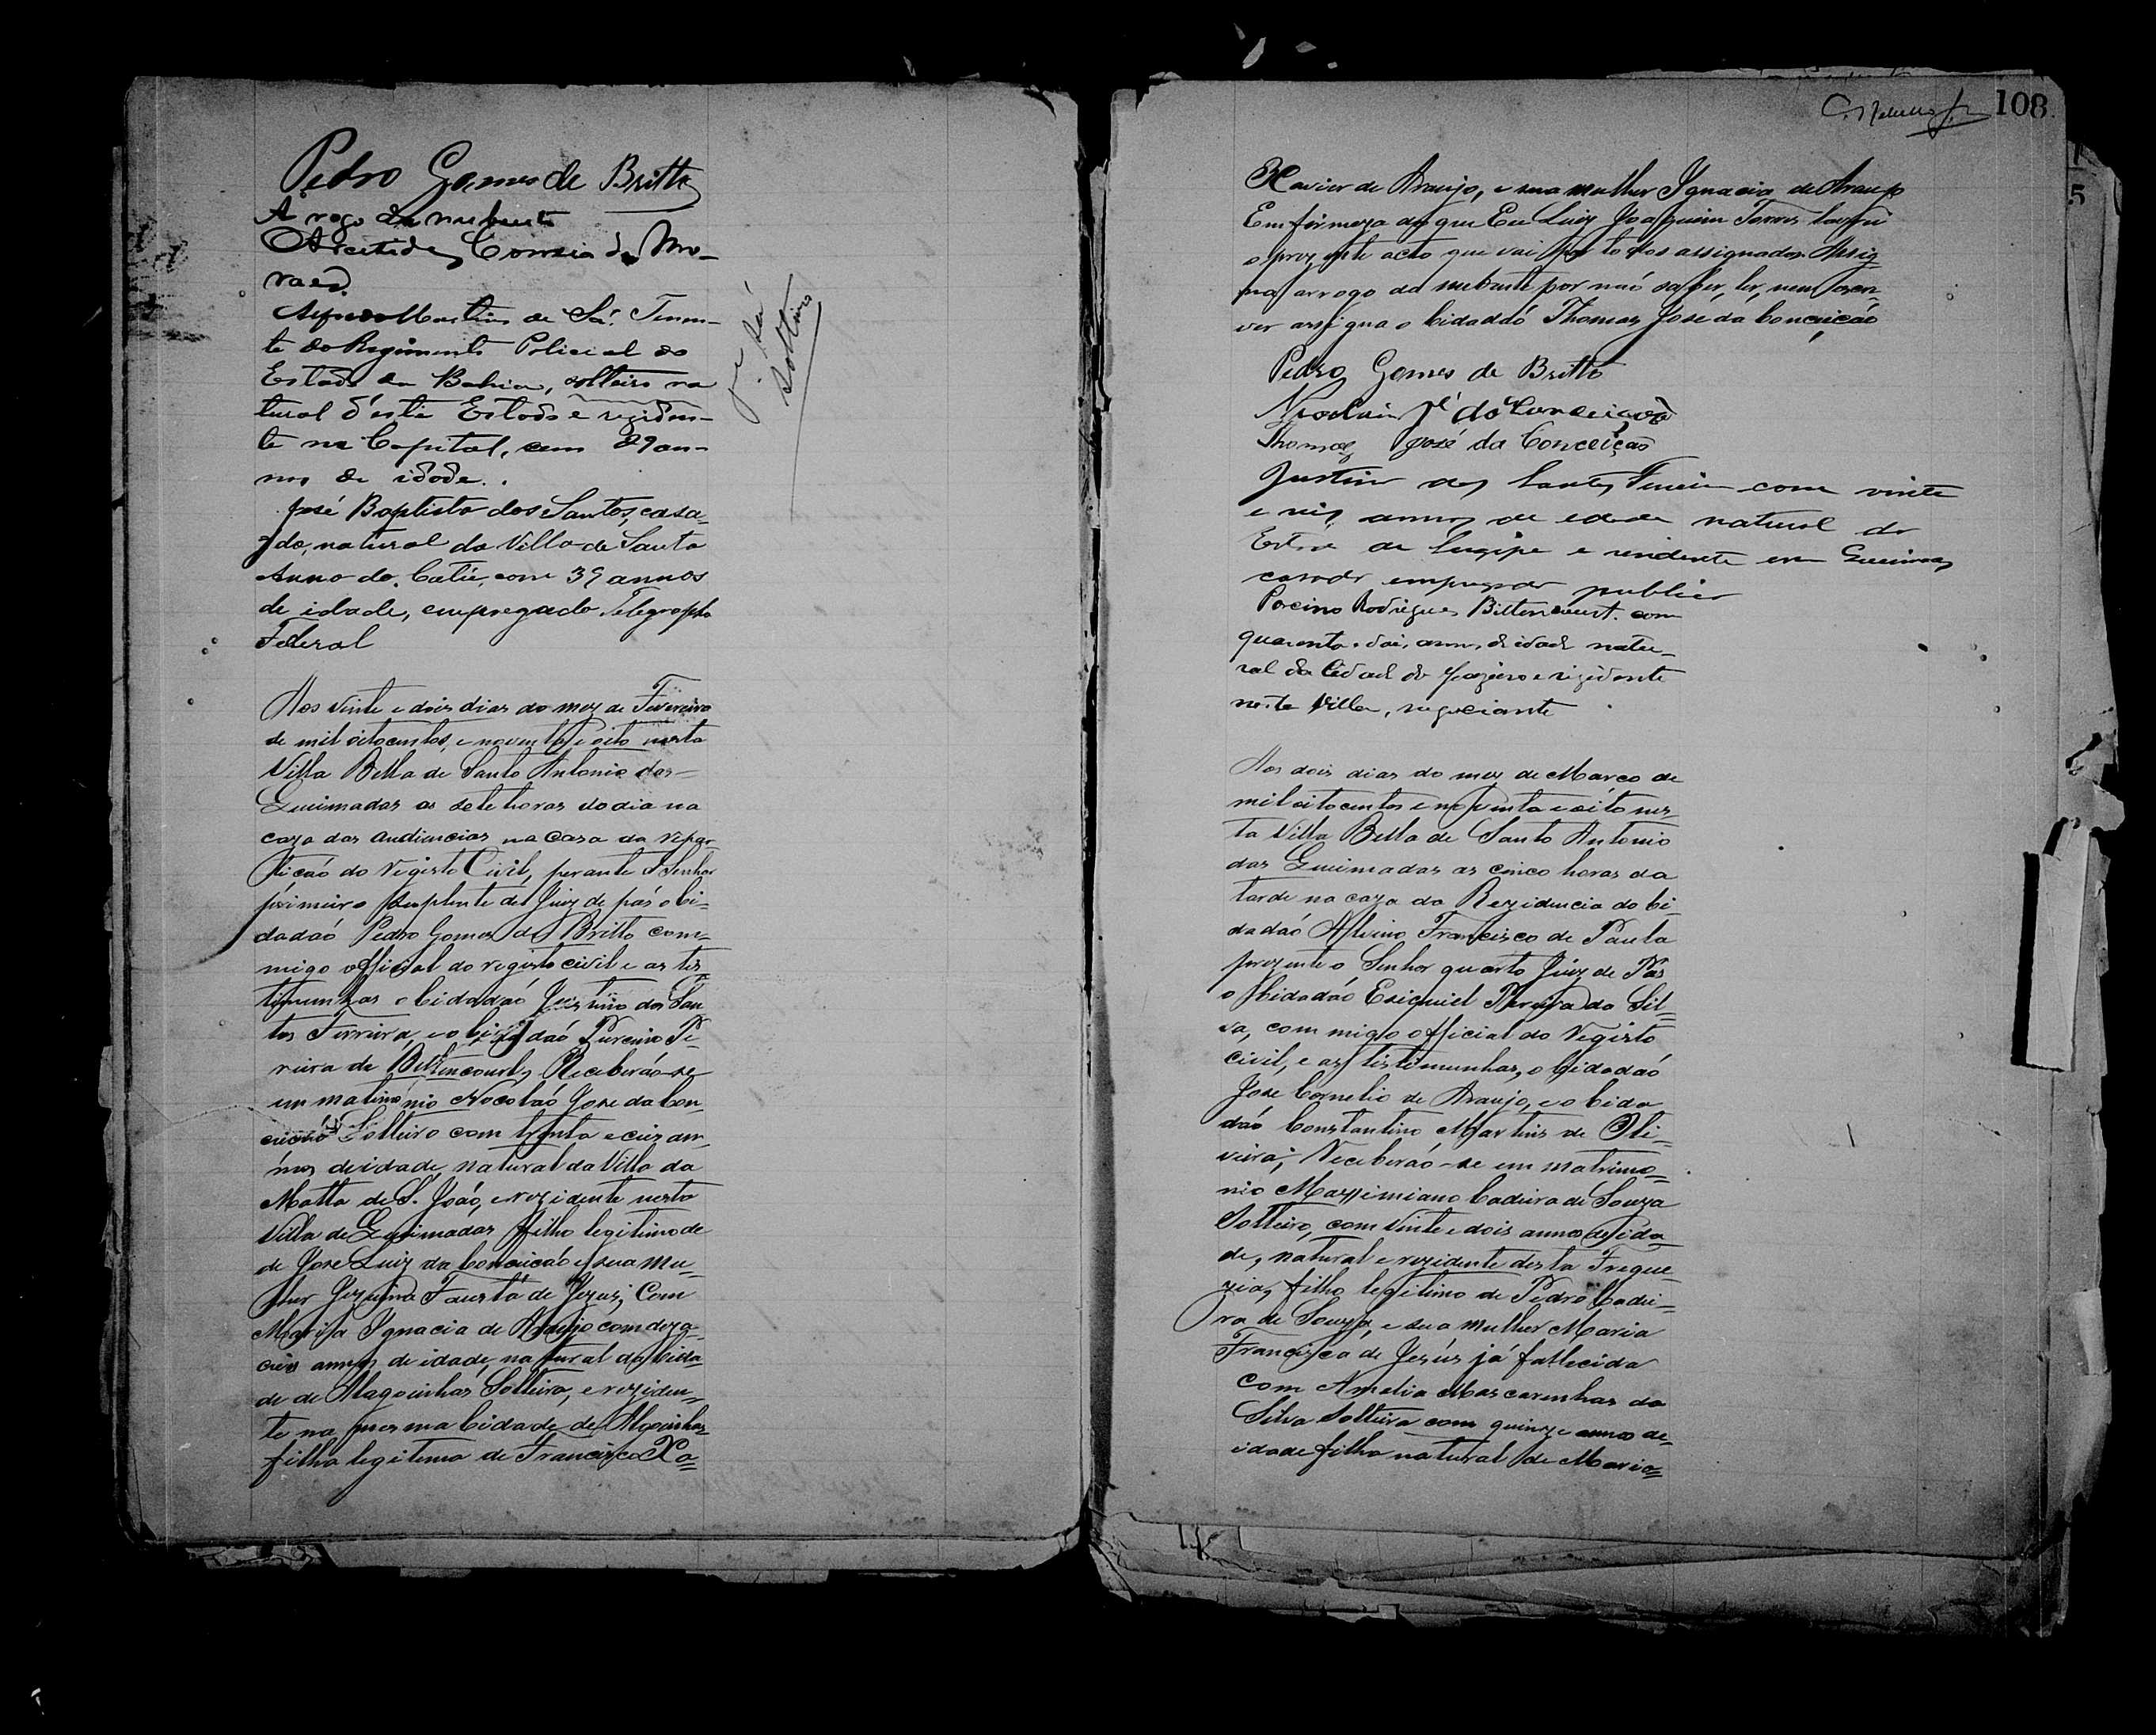 Pedro Gomes de Britto
A rogo da nubente
Correia de Mo-
raes.
Martins de Sá. Tenen-
te do Regimento Policial do
Estado da Bahia, solteiro na
tural d'este Estado e residen-
te na Capital, com 29 an-
nos de idade.
José Baptista dos Santos, casa-
do, natural da Villa de Santa
Anna do Catú, com 39 annos
de idade, empregado Telegrapho
Federal
solteiro
Aos vinte e dois dias do mez de Fevereiro
de mil oitocentos e noventa e oito nesta
Villa Bella de Santo Antonio das
Queimadas as sete horas do dia na
caza das audiencias na casa da repar-
ticaó do registo Civil, perante o Senhor
primeiro suplente de Juiz de pás o Ci-
dadaó Pedro Gomes de Britto com-
migo official do registo civil e as tes
timunhas o Cidadaó Justino dos San
tos Ferreira, e o Cidadaó Purcino Pe-
reira de Bettencourt, Receberaó-se
em matimonio Nocolaó Jose da Con
ceicaó Solteiro com trenta e ceis an-
nos de idade, natural da Villa da
Matta de S. Joaó, e rezidente nesta
Villa de Queimadas filho legitimo de
de Jose Luiz da Conceicaó e sua mu-
lher Fausta de Jezus; Com
Maria Ignacia de Araujo com deza-
ceis annos de idade, natural da Cida-
de de Alagoinhas Solteira, e reziden-
te na mesma Cidade de Alagoinhas
filha legitima de Francisco Xa-
108
Xavier de Araujo, e sua mulher Ignacia de Araujo
Em firmeza do que Eu Luiz Joaquim Torres lavrei
o prezente acto que vai por todos assignados. Assig-
na arrogo da nubente por naó saber, ler, nem escre-
ver assigna o Cidadaó Thomaz Jose da Conceicaó
Pedro Gomes de Britto
Nicolau Jé da Conceição
Thomaz José da Conceição
Justino dos Santos Ferreira com vinte
e seis annos de edade natural do
Estado de Sergipe e residente em Queimadas
casado empregado publico
Porcino Rodrigues Bittencourt. com
quarenta e dois annos de idade natu-
ral da Cidade do Joazeiro e rezidente
nesta Villa, negociante
Aos dois dias do mez de Março de
mil oitocentos e noventa e oito nes-
ta Villa Bella de Santo Antonio
das Queimadas as cinco horas da
tarde na caza da Rezidencia do Ci-
dadaó Alvino Francisco de Paula
prezente o Senhor quarto Juiz de Pas
o Cidadaó Eziquiel Pereira da Sil-
va, com migo official do Registo
civil, e as testemunhas, o Cidadaó
Jose Cornelio de Araujo, e o Cida
daó Constantino Martins de Oli-
veira; Receberaó-se em matrimo-
nio Maximiano Cadeira de Souza
Solteiro, com vinte e dois annos de ida-
de, natural e rezidente desta Fregue-
zia, filho legitimo de Pedro Cadei-
ra de Souza, e sua mulher Maria
Francisca de Jesús já fallecida
com Amelia Mascarenhas da
Silva Solteira com quinze annos de-
idade filha natural de Maria-